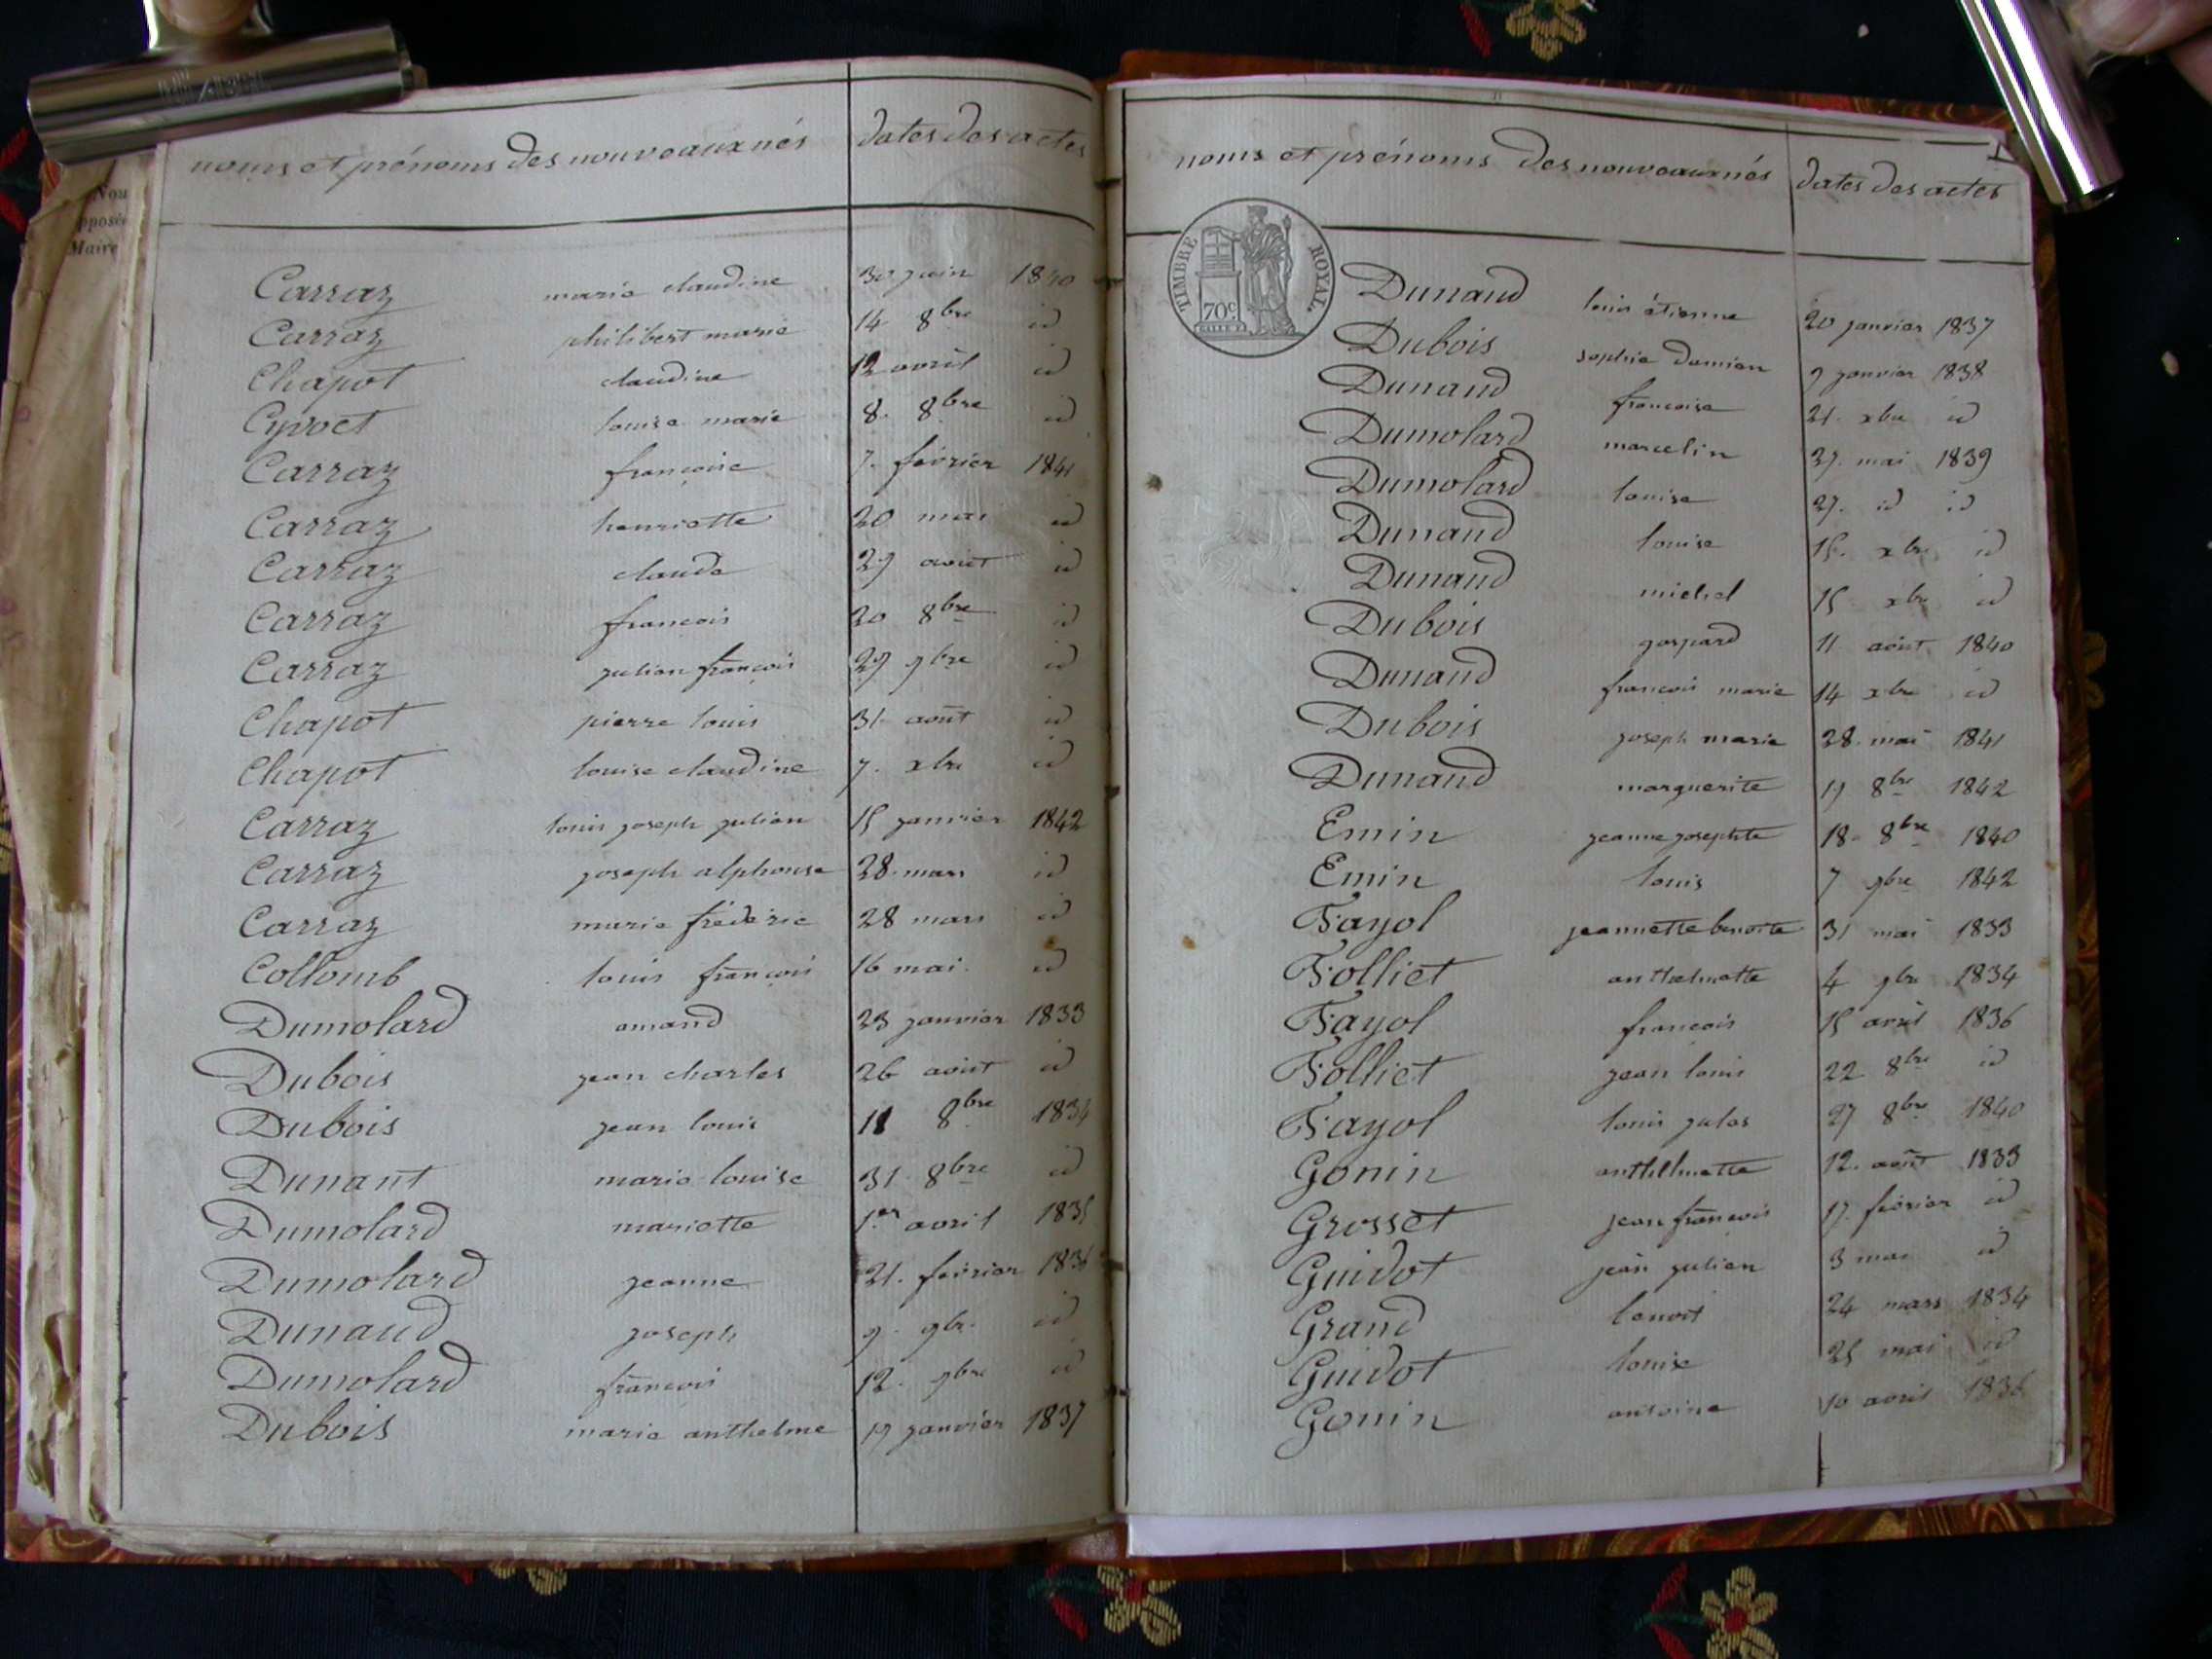 Nou
pposée
Maire
noms et prénoms des nouveaux nés dates des actes
Carraz marie claudine 30 juin 1840
Carraz philibert marie 14 8bre id
Chapot claudine 12 avril id
Cyvoct louise marie 8. 8bre id
Carraz françoise 7. février 1841
Carraz henriette 20 mai id
Carraz claude 29 aout id
Carraz françois 20 8bre id
Carraz julien françois 29 9bre id
Chapot pierre louis 31 août id
Chapot louise claudine 7. xbre id
Carraz louis joseph julien 15 janvier 1842
Carraz joseph alphonse 28. mars id
Carraz marie fréderic 28 mars id
Collomb louis françois 16 mai. id
Dumolard amand 23 janvier 1833
Dubois jean charles 26 aout id
Dubois jean louis 11 8bre 1834
Dunant marie louise 31. 8bre id
Dumolard mariette 1.er avril 1835
Dumolard jeanne 21. février 1836
Dunand joseph 9. 9bre id
Dumolard françois 12. 9bre id
Dubois marie anthelme 19 janvier 1837
noms et prénoms des nouveaux nés dates des actes
TIMBRE ROYAL.
70c
Dunand louis étienne 20 janvier 1837
Dubois sophie damien 9 janvier 1838
Dunand francoise 21. xbre id
Dumolard marcelin 27. mai 1839
Dumolard louise 27. id id
Dunand louise 15. xbre id
Dunand michel 15 xbre id
Dubois gaspard 11 août 1840
Dunand francois marie 14 xbre id
Dubois joseph marie 28. mai 1841
Dunand marguerite 19 8bre 1842
Emin jeanne josephte 18. 8bre 1840
Emin louis 7 9bre 1842
Fayol jeannette benoite 31 mai 1833
Folliet anthelmette 4 9bre 1834
Fayol francois 15 avril 1836
Folliet jean louis 22 8bre id
Fayol louis jules 27 8bre 1840
Gonin anthelmette 12. août 1833
Grosset jean françois 17. février id
Guidot jean julien 3 mai id
Grand benoit 24 mars 1834
Guidot louise 25 mai id
Gonin antoine 10 avril 1836